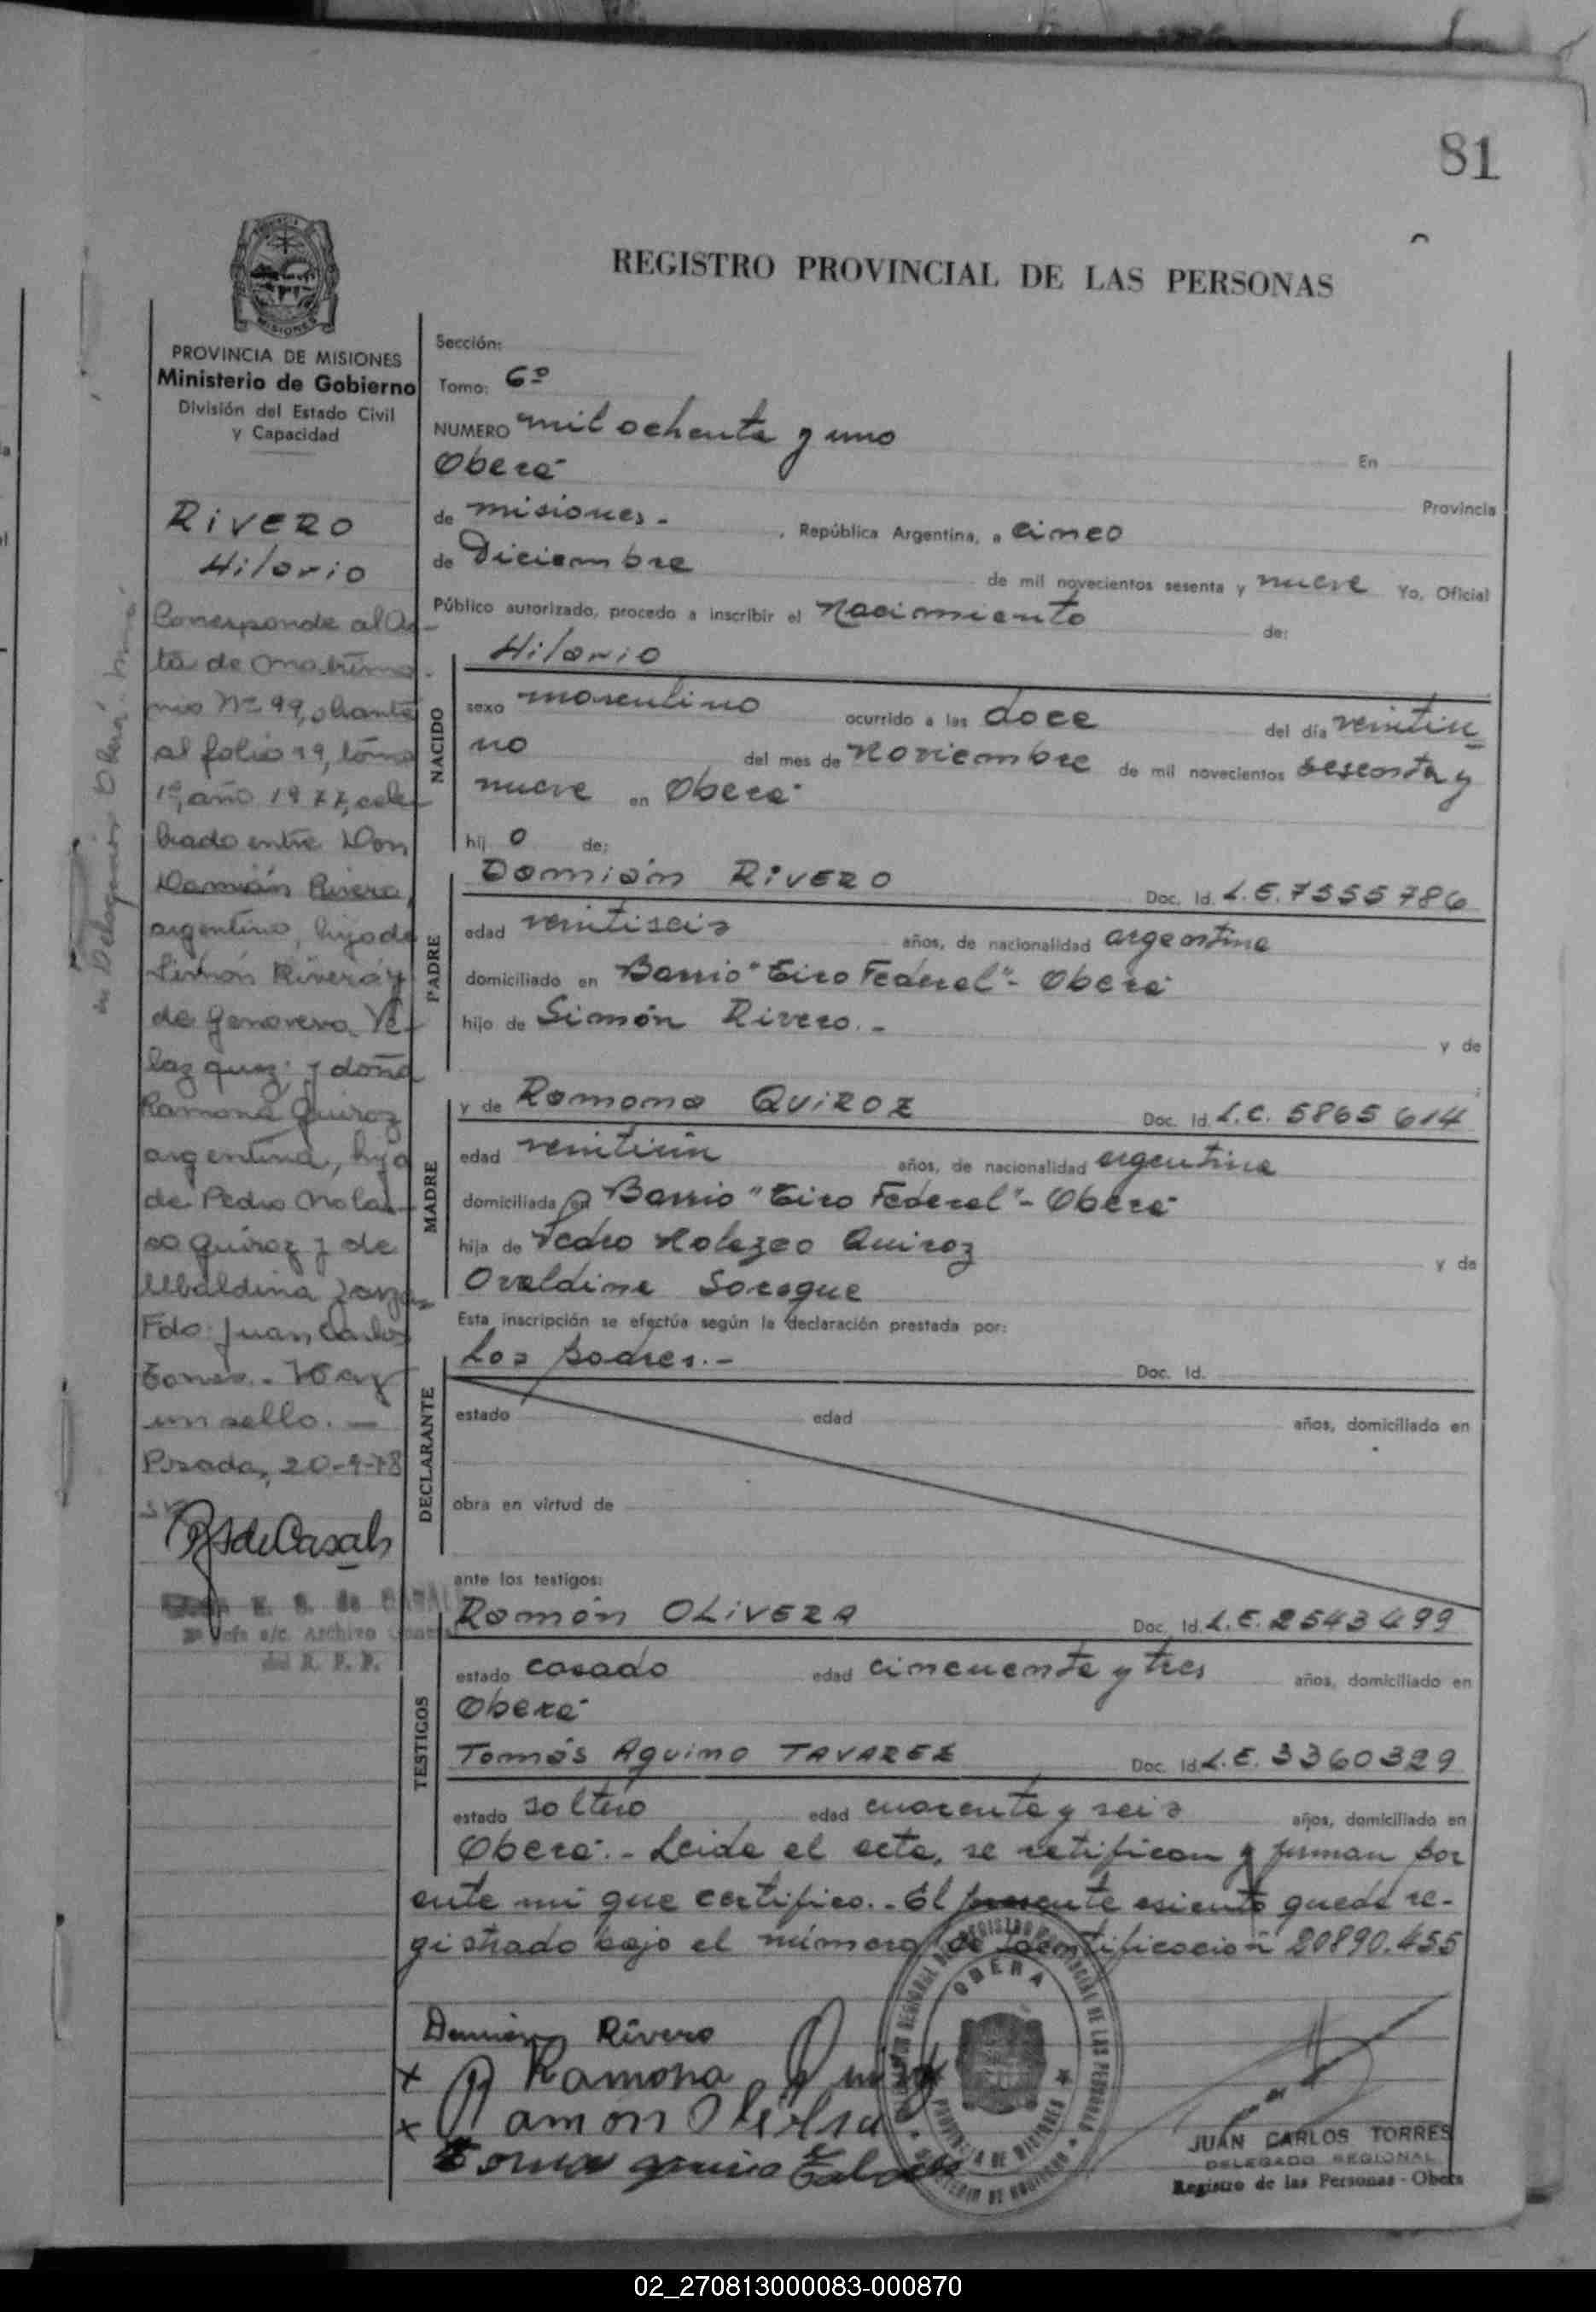 81
REGISTRO PROVINCIAL DE LAS PERSONAS
PROVINCIA DE MISIONES
Ministerio de Gobierno
División del Estado Civil
y Capacidad
RIVERO
Hilario
Corresponde al Ac-
ta de Matrimo-
nio Nº 99, obrante
al folio 99, tomo
1º, año 1977, cele-
brado entre Don
Damián Rivero,
argentino, hijo de
Simón Rivero y
de Genoveva Ve-
lazquez; y doña
Ramona Quiroz
argentina, hija
de Pedro Nolas-
co Quiroz y de
Ubaldina
Fdo: Juan Carlos
Torres.- Hay
un sello.-
Posadas, 20-9-78
RJdeCasals
E. S. de CASALS
Jefe a/c. Archivo General
del R. P. P.
Sección:
Tomo: 6º
NUMERO mil ochenta y uno
Oberá En
Provincia
de Misiones.- , República Argentina, a cinco
de Diciembre de mil novecientos sesenta y nueve Yo, Oficial
Público autorizado, procedo a inscribir el Nacimiento de:
NACIDO
Hilario
sexo masculino ocurrido a las doce del día veintiu
no del mes de Noviembre de mil novecientos sesenta y
nueve en Oberá
hij o de:
PADRE
Damián RIVERO Doc. Id. L.E. 7555786
edad veintiseis años, de nacionalidad argentina
domiciliado en Barrio "Tiro Federal"- Oberá
hijo de Simón Rivero.-
y de
MADRE
y de Ramona QUIROZ Doc. Id. L.C. 5865614
edad veintiún años, de nacionalidad argentina
domiciliada en Barrio "Tiro Federal"- Oberá
hija de Pedro Nolazco Quiroz y de
Ovaldina Soroque
Esta inscripción se efectúa según la declaración prestada por:
DECLARANTE
Los padres.- Doc. Id.
estado edad años, domiciliado en
obra en virtud de
ante los testigos:
TESTIGOS
Ramón OLIVERA Doc. Id. L.E. 2543499
estado casado edad cincuenta y tres años, domiciliado en
Oberá
Tomás Aquino TAVAREZ Doc. Id. L.E. 3360329
estado soltero edad cuarenta y seis años, domiciliado en
Oberá.- Leida el acta, se ratifican y firman por
ante mí que certifico.- El presente asiento queda re-
gistrado bajo el número de identificación 20890.455
Damian Rivero
x Ramona Quiroz
x Ramon Olivera
OBERA
PROVINCIA DE MISIONES
JUAN CARLOS TORRES
DELEGADO REGIONAL
Registro de las Personas - Oberá
02_270813000083-000870